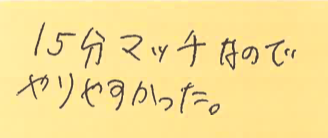 15分マッチなので
やりやすかった。